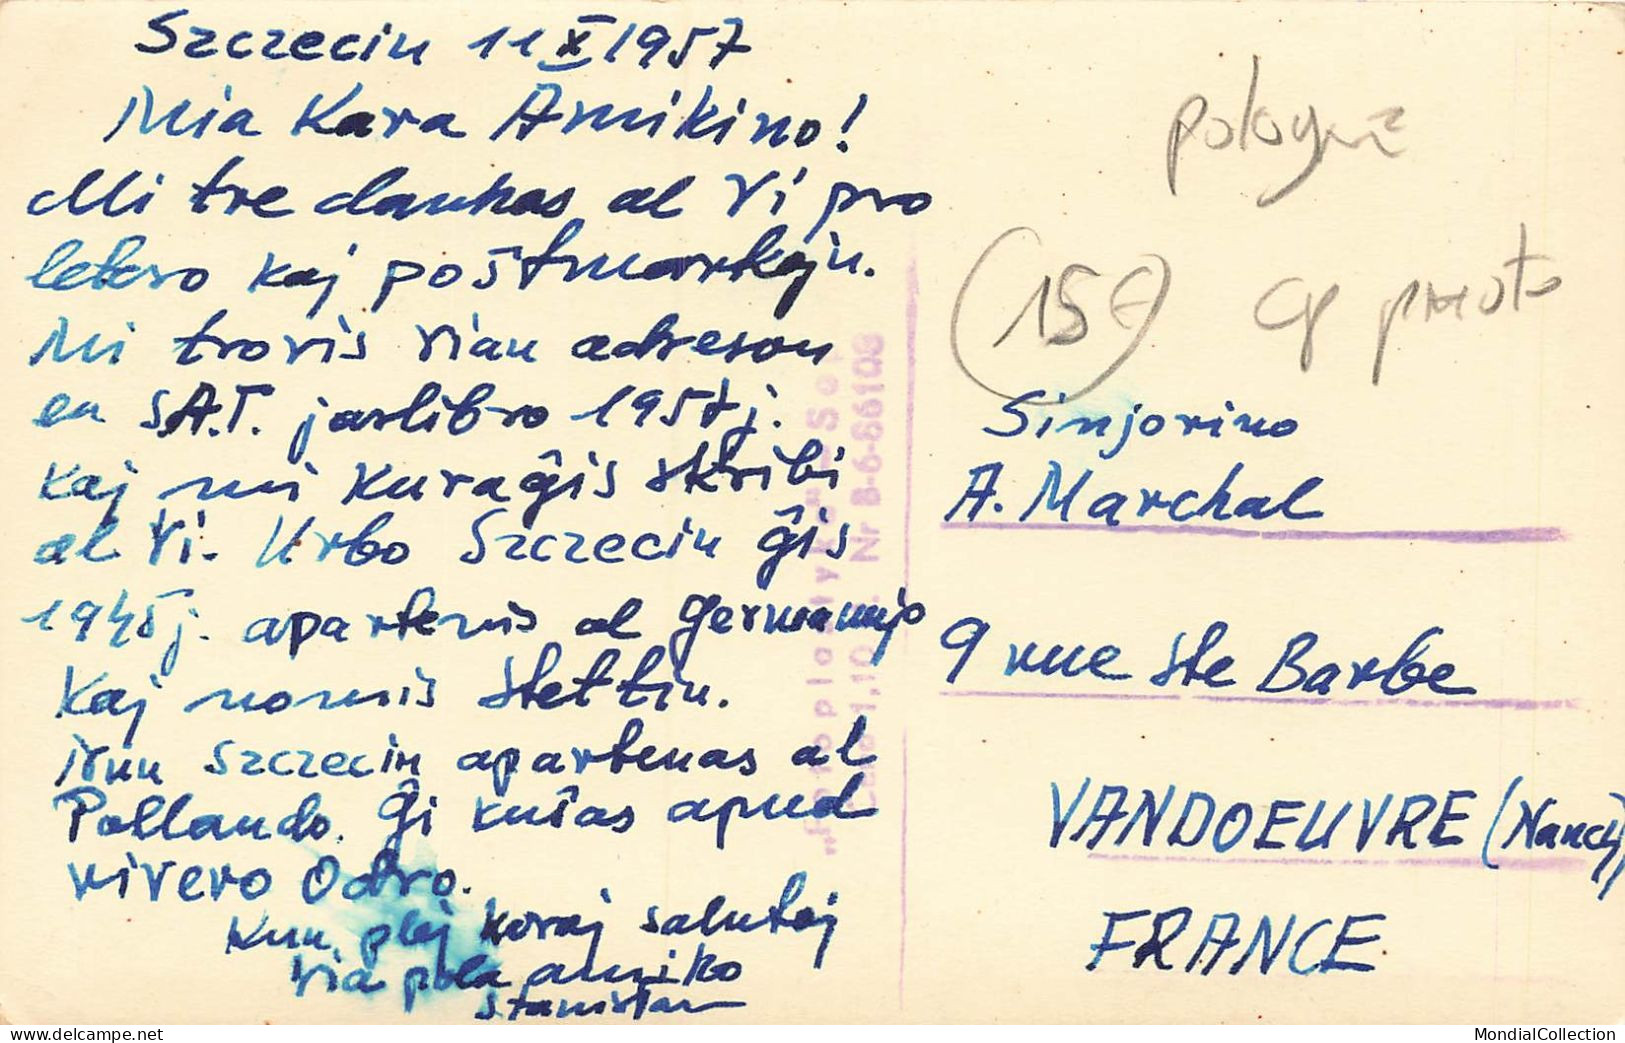 Szczecin 11 X 1957
Mia Kara Amikino!
Mi tre dankas al Vi pro
letero kaj poŝtmarkojn.
Mi trovis vian adreson
en S.A.T. jarlibro 1957j.
kaj mi kuraĝis skribi
al Vi. Urbo Szczecin ĝis
1945j. apartenis al Germanujo
kaj nomis Stettin.
Nun Szczecin apartenas al
Pollando. Ĝi kuŝas apud
rivero Odro.
Kun plej koraj salutoj
via pola amiko
Stanisław
pologne
(15€) cp photo
Sinjorino
A. Marchal
9 rue Ste Barbe
VANDOEUVRE (Nancy)
FRANCE
Nr B-6-66108
MondialCollection
delcampe.net